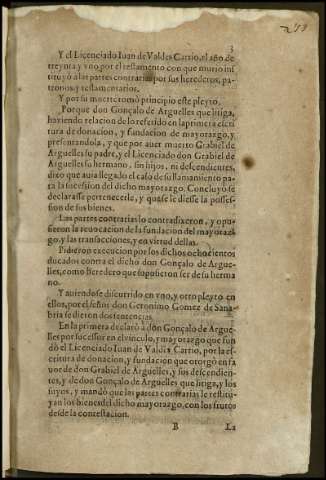 3
Y el Licenciado Iuan de Valdes Carrio, el año de
treynta y vno por el testamento con que murio inf
tituyò a las partes contrarias por sus herederos, pa-
tronos, y testamentarios.
Y por su muerte tomò principio este pleyto.
Porque don Gonçalo de Arguelles que litiga,
haziendo relacion de lo referido en la primera escri-
tura de donacion, y fundacion de mayorazgo, y
presentandola, y que por auer muerto Grabiel de
Arguelles su padre, y el Licenciado don Grabiel de
Arguelles su hermano, sin hijos, ni descendientes,
dixo que auia llegado el caso de su llamamiento pa-
ra la sucession del dicho mayorazgo. Concluyò se
declarasse pertenecerle, y que se le diesse la posses-
sion de sus bienes.
Las partes contrarias lo contradixeron, y opu-
sieron la reuocacion de la fundacion del mayoraz-
go, y las transacciones, y en virtud dellas.
Pidieron execucion por los dichos ochocientos
ducados contra el dicho don Gonçalo de Argue-
lles, como heredero que supusieron ser de su herma
no.
Y auiendose discurrido en vno, y otro pleyto en
ellos, por el señor don Geronimo Gomez de Sana-
bria se dieron dos sentencias.
En la primera declarò à don Gonçalo de Argue-
lles por successor en el vinculo, y mayorazgo que fun
dò el Licenciado Iuan de Valdes Carrio, por la es-
critura de donacion, y fundacion que otorgò en fa
uor de don Grabiel de Arguelles, y sus descendien-
tes, y de don Gonçalo de Arguelles que litiga, y los
suyos, y mandò que las partes contrarias le restitu-
yan los bienes del dicho mayorazgo, con los frutos
desde la contestacion.
B La